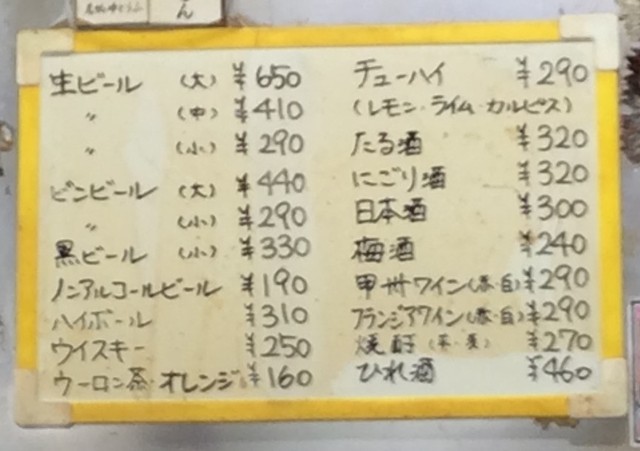 ん
生ビール (大) ¥650
〃 (中) ¥410
〃 (小) ¥290
ビンビール (大) ¥440
〃 (小) ¥290
黒ビール (小) ¥330
ノンアルコールビール ¥190
ハイボール ¥310
ウイスキー ¥250
ウーロン茶・オレンジ ¥160
チューハイ ¥290
(レモン・ライム・カルピス)
たる酒 ¥320
にごり酒 ¥320
日本酒 ¥300
梅酒 ¥240
甲州ワイン(赤・白) ¥290
フランジアワイン(赤・白) ¥290
焼酎 (米・麦) ¥270
ひれ酒 ¥460